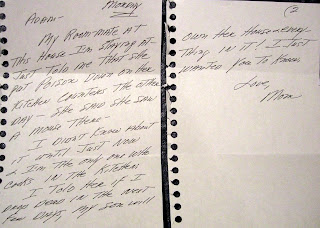 Adam- Monday
My Room-mate at
This House I'm staying at-
Just Told me That she
put Poison Down on Her
Kitchen Counters The other
Day - She said she saw
A mouse There -
I Didn't Know about
it until Just now
& I'm The only one who
cooks in The Kitchen
I Told Her if I
drop Dead in the next
Few Days, my son will
(2
own Her House & every-
Thing in it! I Just
wanted You To Know
Love,
Mom